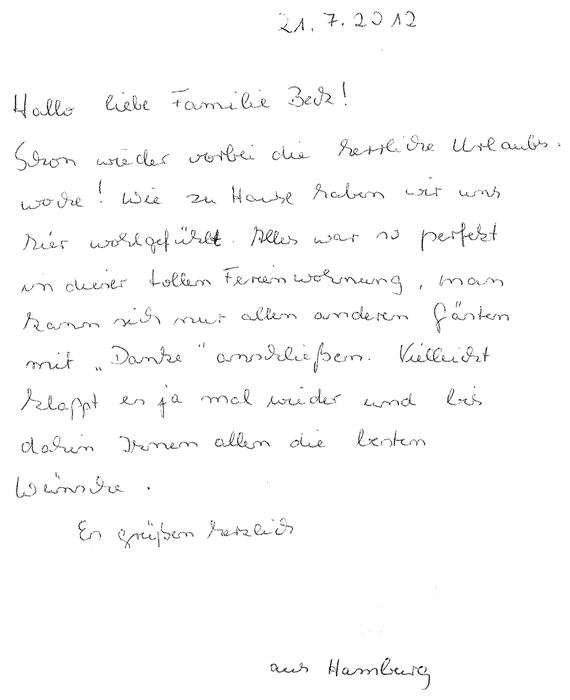 21.7.2012
Hallo liebe Familie Beck!
Schon wieder vorbei die herrliche Urlaubs-
woche! Wie zu Hause haben wir uns
hier wohlgefühlt. Alles war so perfekt
in dieser tollen Ferienwohnung, man
kann sich nur allen anderen Gästen
mit „Danke" anschließen. Vielleicht
klappt es ja mal wieder und bis
dahin Ihnen allen die besten
Wünsche.
Es grüßen herzlich
aus Hamburg